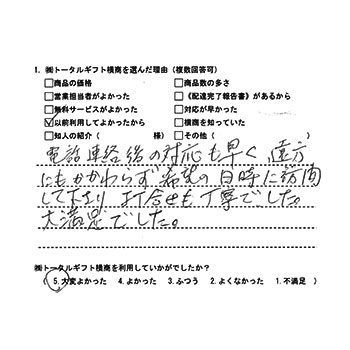 1. ㈱トータルギフト横商を選んだ理由（複数回答可）
□商品の価格 □商品数の多さ
□営業担当者がよかった □《配達完了報告書》があるから
□無料サービスがよかった □対応が早かった
☑以前利用してよかったから □横商を知っていた
□知人の紹介（ 様） □その他（ ）
電話連絡後の対応も早く、遠方
にもかかわらず希望の日時に訪問
して下さり 打合せも丁寧でした。
大満足でした。
㈱トータルギフト横商を利用していかがでしたか？
（ 5.大変よかった 4.よかった 3.ふつう 2.よくなかった 1.不満足 ）